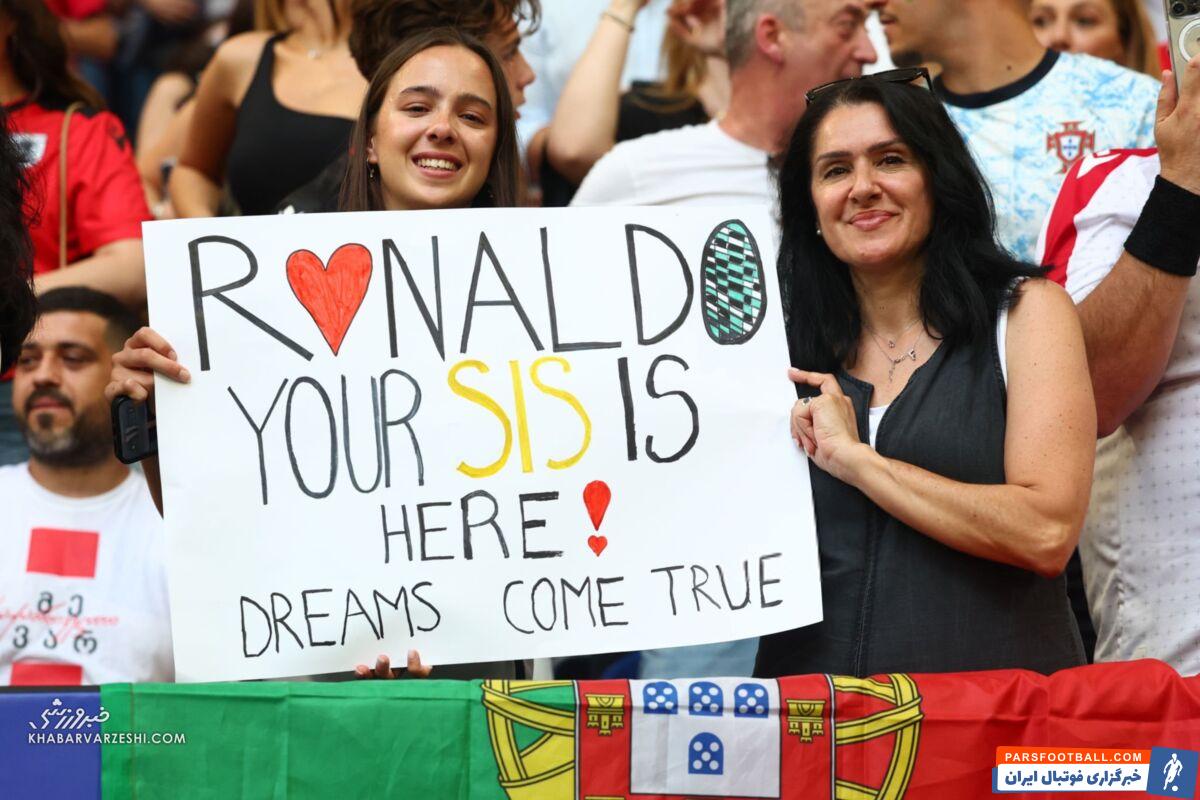 R♥NALDO
YOUR SIS IS
HERE!
DREAMS COME TRUE
მე
ვარ
خبرورزشی
KHABARVARZESHI.COM
PARSFOOTBALL.COM
خبرگزاری فوتبال ایران